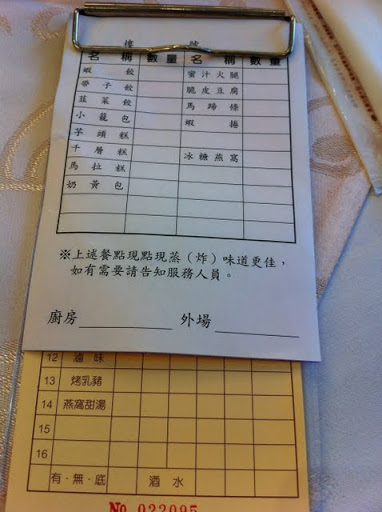 樓 號
名稱 數量 名稱 數量
蝦餃 蜜汁火腿
帶子餃 脆皮豆腐
韮菜餃 馬蹄條
小籠包 蝦捲
芋頭糕
千層糕 冰糖燕窩
馬拉糕
奶黃包
※上述餐點現點現蒸（炸）味道更佳，
如有需要請告知服務人員。
廚房 外場
12 滷味
13 烤乳豬
14 燕窩甜湯
15
16
有·無·底 酒水
No 022095